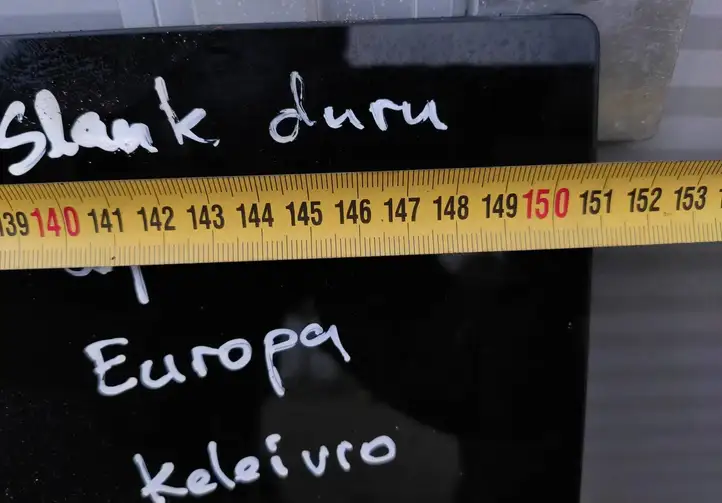 Slank duru
139 140 141 142 143 144 145 146 147 148 149 150 151 152 153
Europa
keleivro